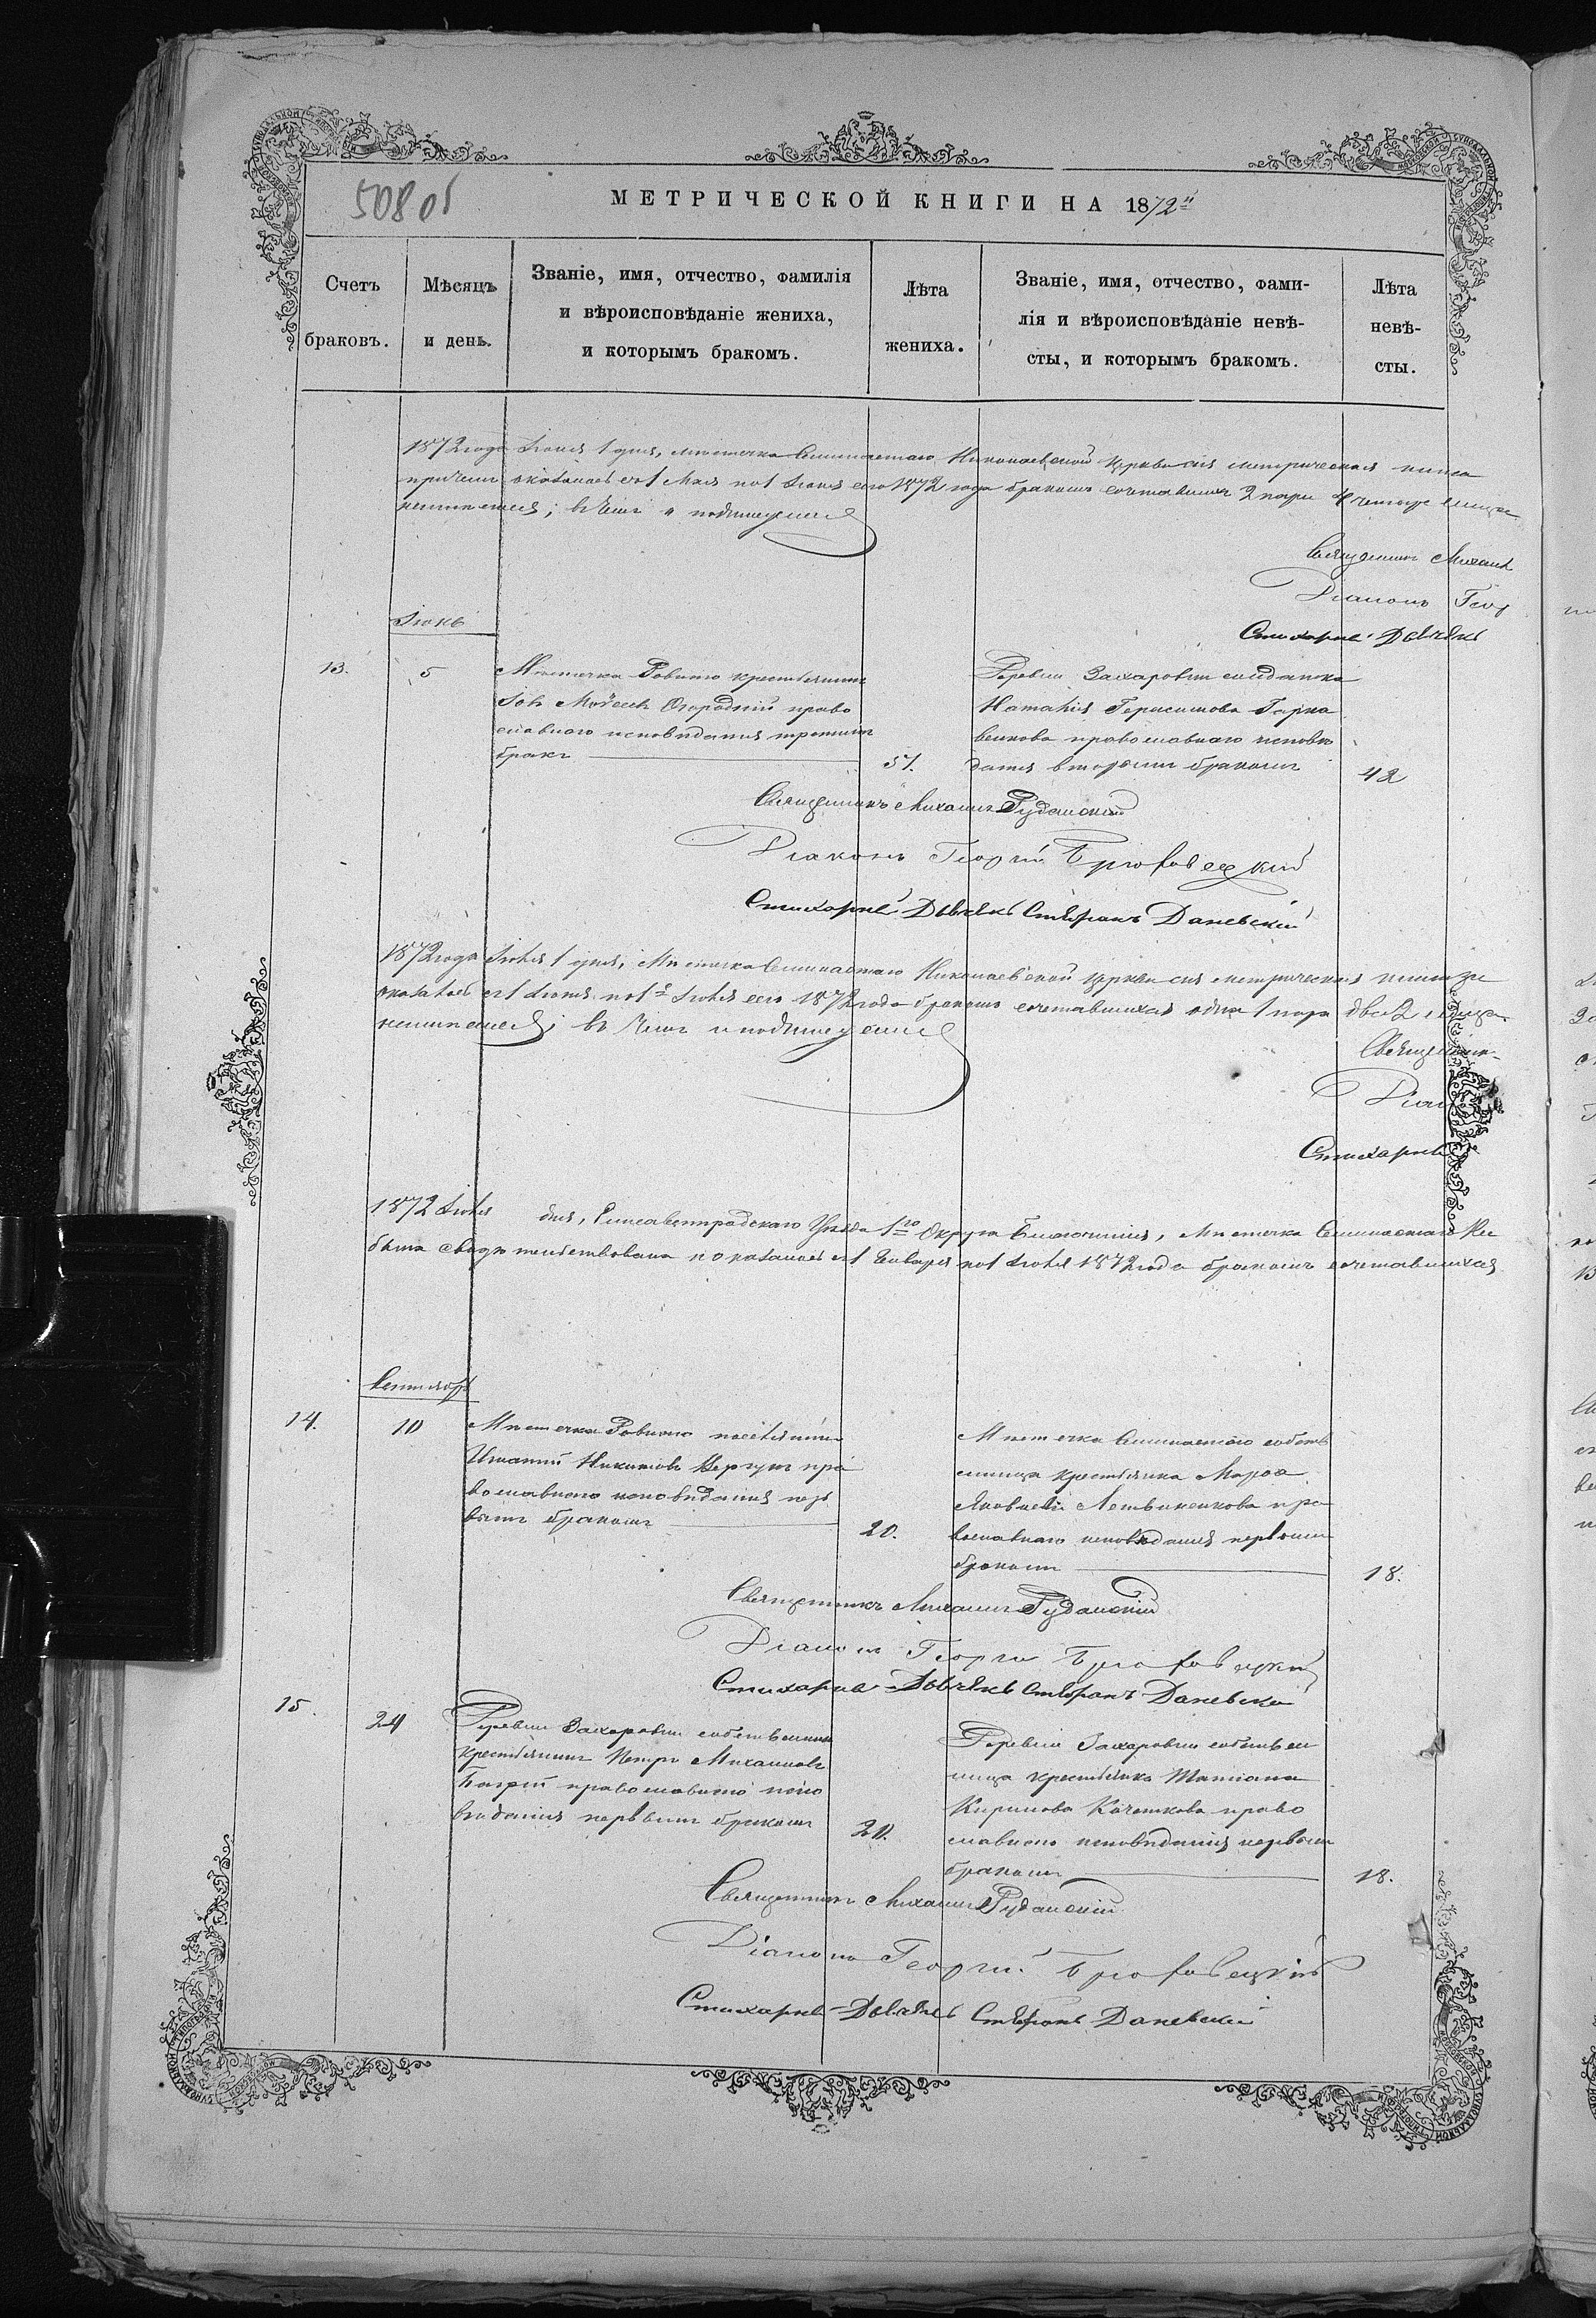 508 об
МЕТРИЧЕСКОЙ КНИГИ НА 1872й
Счетъ браковъ.
Мѣсяцъ и день.
Званіе, имя, отчество, фамилія
и вѣроисповѣданіе жениха,
и которымъ бракомъ.
Лѣта жениха.
Званіе, имя, отчество, фами-
лія и вѣроисповѣданіе невѣ-
сты, и которымъ бракомъ.
Лѣта невѣ-
сты.
1872 года Іюня 1 дня, мѣстечка Николаевской церкви сія метрическая книга
причтомъ съ 1 Мая по 1 Іюня сего 1872 года бракомъ сочетавших 2 пары 4 четыре лица
въ чемъ и подписуемся
Священникъ Михаил
Діаконъ Геор
Стихарный Дьячекъ
Іюнь
13.
5
Мѣстечка Ровного крестьянинъ
Огородній право
славного исповѣданія третимъ
бракъ
51.
Деревни Захаровки солдатка
Наталія Герасимова
православного исповѣ
данія вторымъ бракомъ
42
Священникъ Михаилъ Руданскій
Діаконъ Георгій Брюховецкій
Стихарный Дьячекъ Стефанъ Даневскій
1872 года Іюля 1 дня, Мѣстечка Николаевской церкви сія метрическая книга
съ 1 Іюня по 1е Іюля сего 1872 года бракомъ сочетавшихся одна 1 пара два 2 лица
въ чемъ и подписуемся
Священник
Діак
Стихарный
1872 Іюля дня, Елисаветградскаго Уѣзда 1го Округа Благочинія, Мѣстечка
была свидѣтельствована и оказалось съ 1 Генваря по 1 Іюля 1872 года бракомъ сочетавшихся
Сентябрь
14.
10
Мѣстечка Ровного поселянинъ
Игнатий Никитовъ Вергунъ пра
вославного исповѣданія пер
вымъ бракомъ
20.
Мѣстечка собств
енница крестьянка Марфа
Яковлева пра
вославного исповѣданія первымъ
бракомъ
18.
Священникъ Михаилъ Руданскій
Діаконъ Георгій Брюховецкій
Стихарный Дьячекъ Стефанъ Даневскій
15.
24
Деревни Захаровки собственникъ
крестьянинъ Петръ Михаиловъ
Багрій православного испо
вѣданія первымъ бракомъ
20.
Деревни Захаровки собственн
ница крестьянка Татіана
Кирилова Кочеткова право
славного исповѣданія первымъ
бракомъ
18.
Священникъ Михаилъ Руданскій
Діаконъ Георгій Брюховецкій
Стихарный Дьячекъ Стефанъ Даневскій